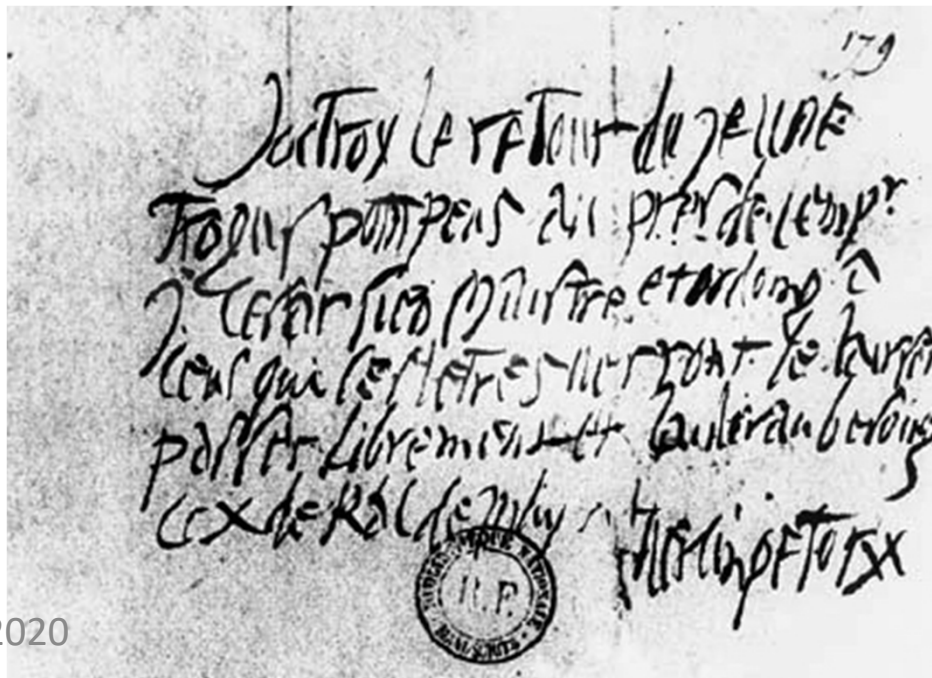 179
Joctroy le retour du jeune
Trogus pompeus au pres de lempr
J. Cesar sien Maistre et ordonne à
ceus qui ces letres uerront le
passer librement et laider au besoing
ce x de Kal de Uersingetorix
BIBLIOTHEQUE NATIONALE
R.F.
MANUSCRITS
2020